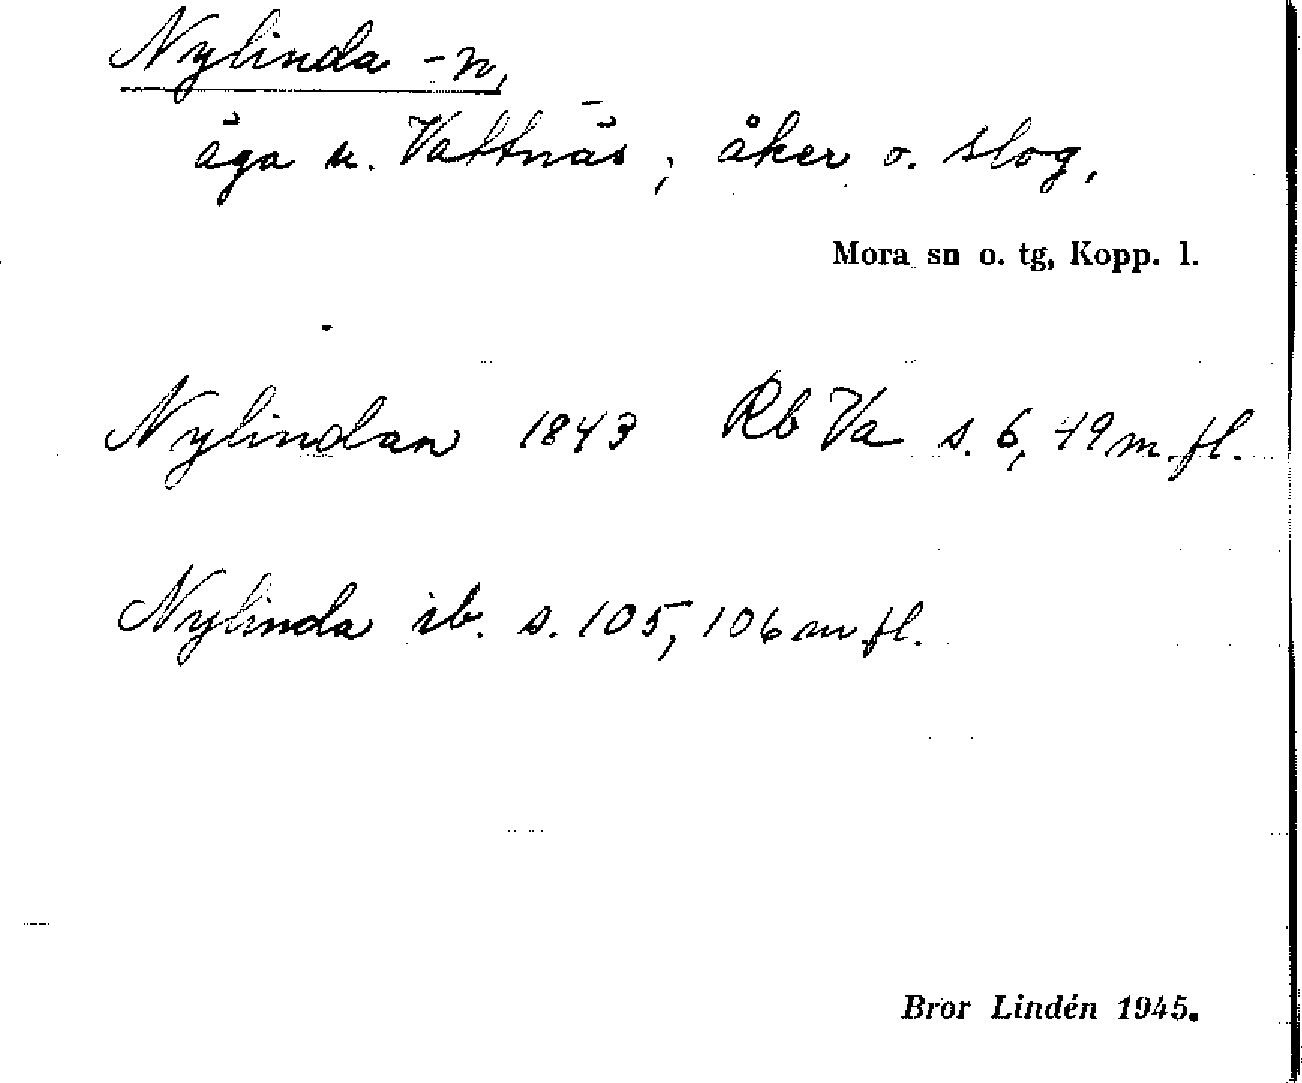 Nylinda -n,
äga u. Vattnäs; åker o. slog.
Mora sn o. tg, Kopp. l.
Nylindan 1843 Rb Va s. 6, 49 m. fl.
Nylinda ib. s. 105, 106 m fl.
Bror Lindén 1945.